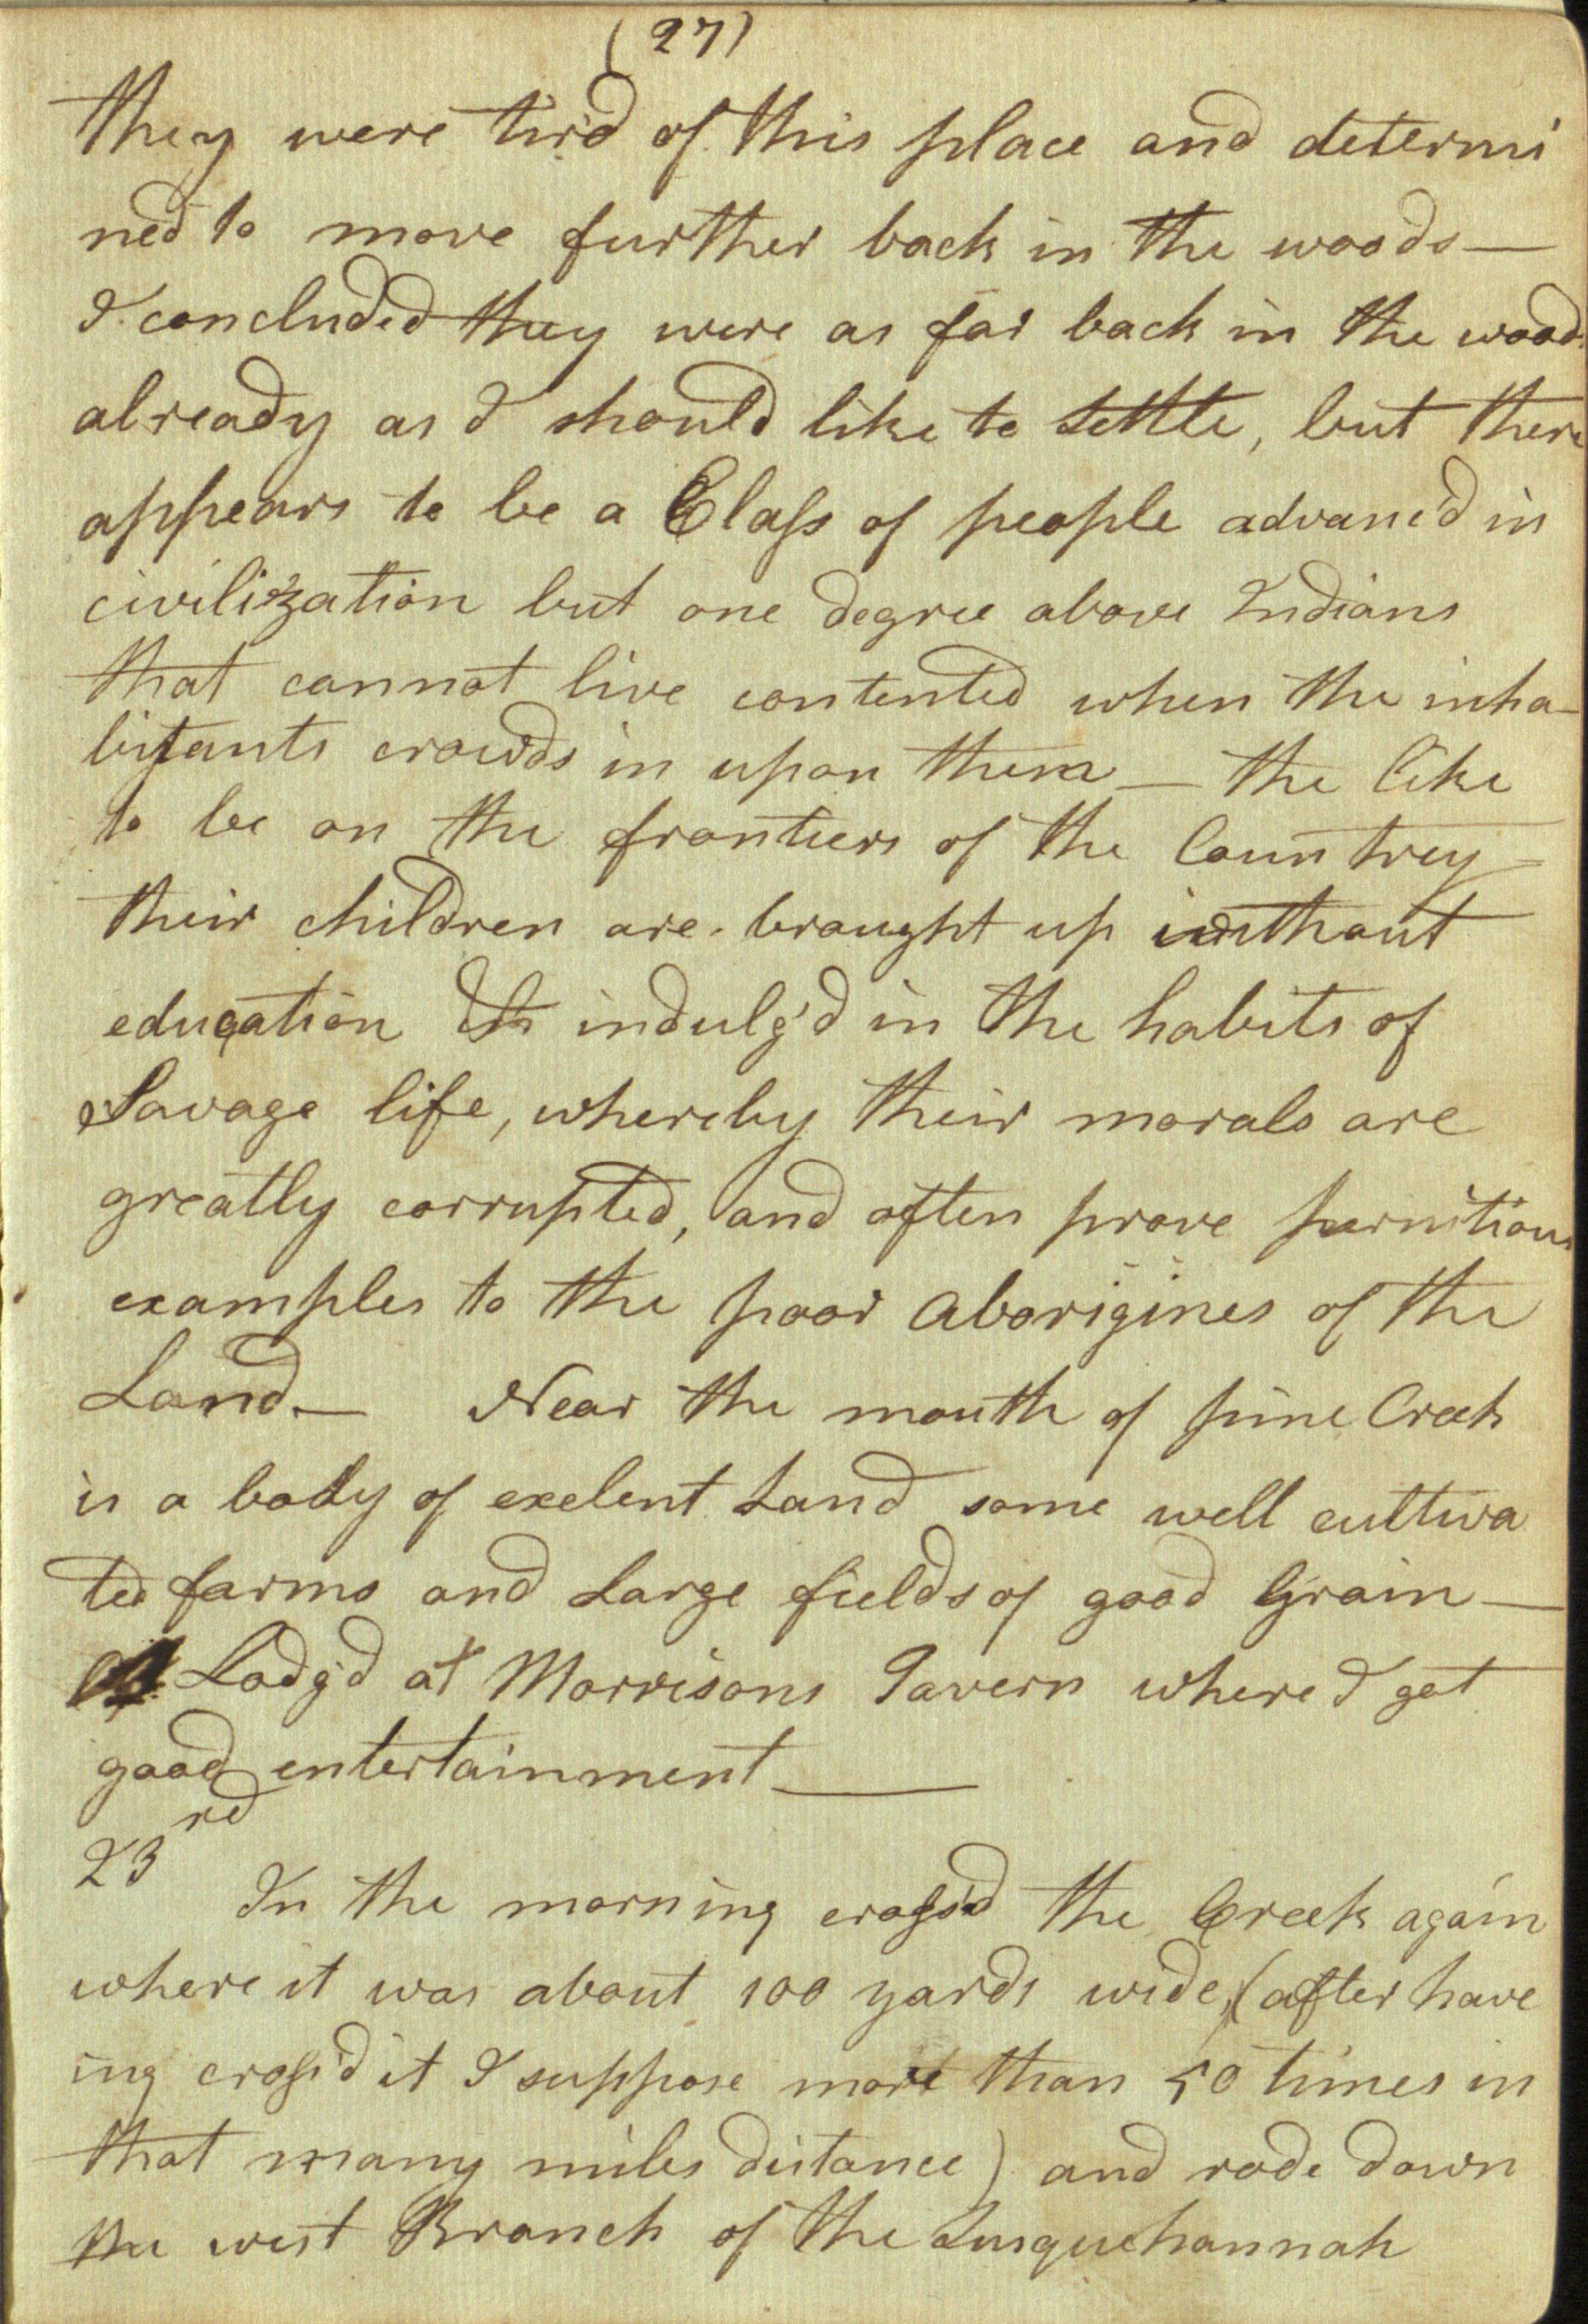 (27)
they were tir'd of this place and determi
ned to move further back in the woods—
I concluded they were as far back in the woods
already as I should like to settle, but there
appears to be a Class of people advanc'd in
civilization but one degree above Indians
that cannot live contented when the inha-
bitants crowds in upon them — the like
to be on the frontiers of the Countrey—
their children are brought up without
education & indulg'd in the habits of
Savage life, whereby their morals are
greatly corrupted, and often prove pernitious
examples to the poor aborigines of the
Land — Near the mouth of pine Creek
is a body of exelent Land some well cultiva
ted farms and Large fields of good Grain —
Lodg'd at Morrisons Tavern where I got
good entertainment —
23rd In the morning cross'd the Creek again
where it was about 100 yards wide, (after have
ing cross'd it I suppose more than 50 times in
that many miles distance) and rode down
the west Branch of the Susquehannah